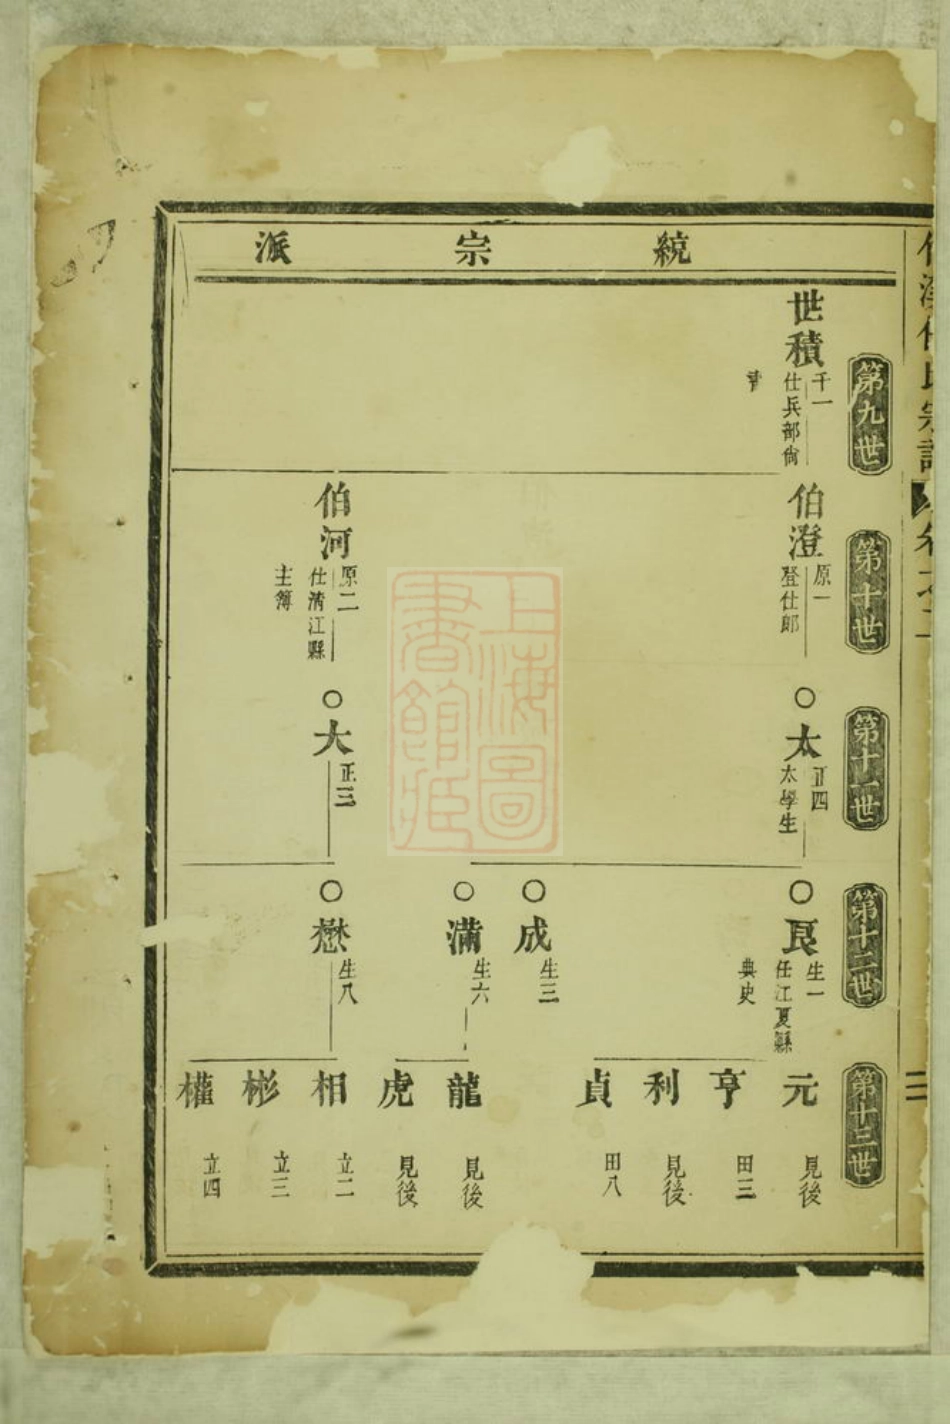 統宗派
第九世
世積
千一
仕兵部尙
書
第十世
伯澄
原一
登仕郎
伯河
原二
仕清江縣
主簿
第十一世
○太
正四
太學生
○大
正三
第十二世
○良
生一
任江夏縣
典史
○成
生三
○滿
生六
○懋
生八
第十三世
元
見後
亨
田三
利
見後
貞
田八
龍
見後
虎
見後
相
立二
彬
立三
權
立四
氏宗譜
二
上海圖
書館藏